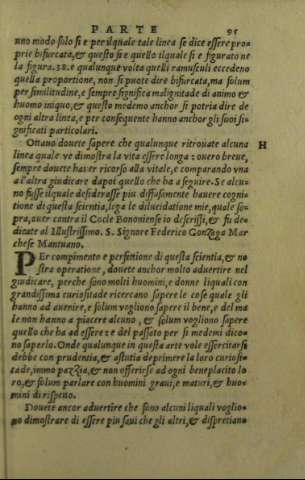 PARTE 95
uno modo solo si e per ilquale tale linea se dice essere pro=
prie bifurcata,& questo si e quello ilquale si e figurato ne
la figura.32.e qualunque volta quelli ramusculi eccedeno
quella proportione, non si puote dire bifurcata, ma solum
per similitudine, e sempre significa malignitade di animo &
huomo iniquo, & questo medemo anchor si potria dire de
ogni altra linea, e per consequente hanno anchor gli suoi si=
gnificati particolari.
Ottauo douete sapere che qualunque ritrouate alcuna H
linea quale ve dimostra la vita essere longa: ouero breue,
sempre douete hauer ricorso alla vitale, e comparando vna
al'altra giudicare dapoi quello che ha a seguire. Se alcu=
no fusse ilquale desiderasse piu diffusamente hauere cogni=
tione di questa scientia, lega le dilucidatione mie, quale so=
pra, ouer contra il Cocle Bononiense io descrissi, & fu de=
dicate al Illustrissimo. S. Signore Federico Gonzaga Mar
chese Mantuano.
PEr compimento e perfettione di questa scientia,& no
stra operatione, douete anchor molto aduertire nel
giudicare, perche sono molti huomini, e donne liquali con
grandissima curiositade ricercano sapere le cose quale gli
hanno ad auenire, e solum vogliono sapere il bene, e del ma
le non hanno a piacere alcuno, & solum vogliono sapere
quello che ha ad essere ze del passato per si medemi dico=
no saperlo. Onde qualunque in questa arte vole essercitarsi
debbe con prudentia, & astutia deprimere la loro curiosi=
tade, immo pazzia, & non offerirse ad ogni beneplacito lo
ro, & solum parlare con huomini graui, e maturi, & huo=
mini di rispetto.
Douete ancor aduertire che sono alcuni liquali voglio=
no dimostrare di essere piu saui che gli altri, & dispretiano